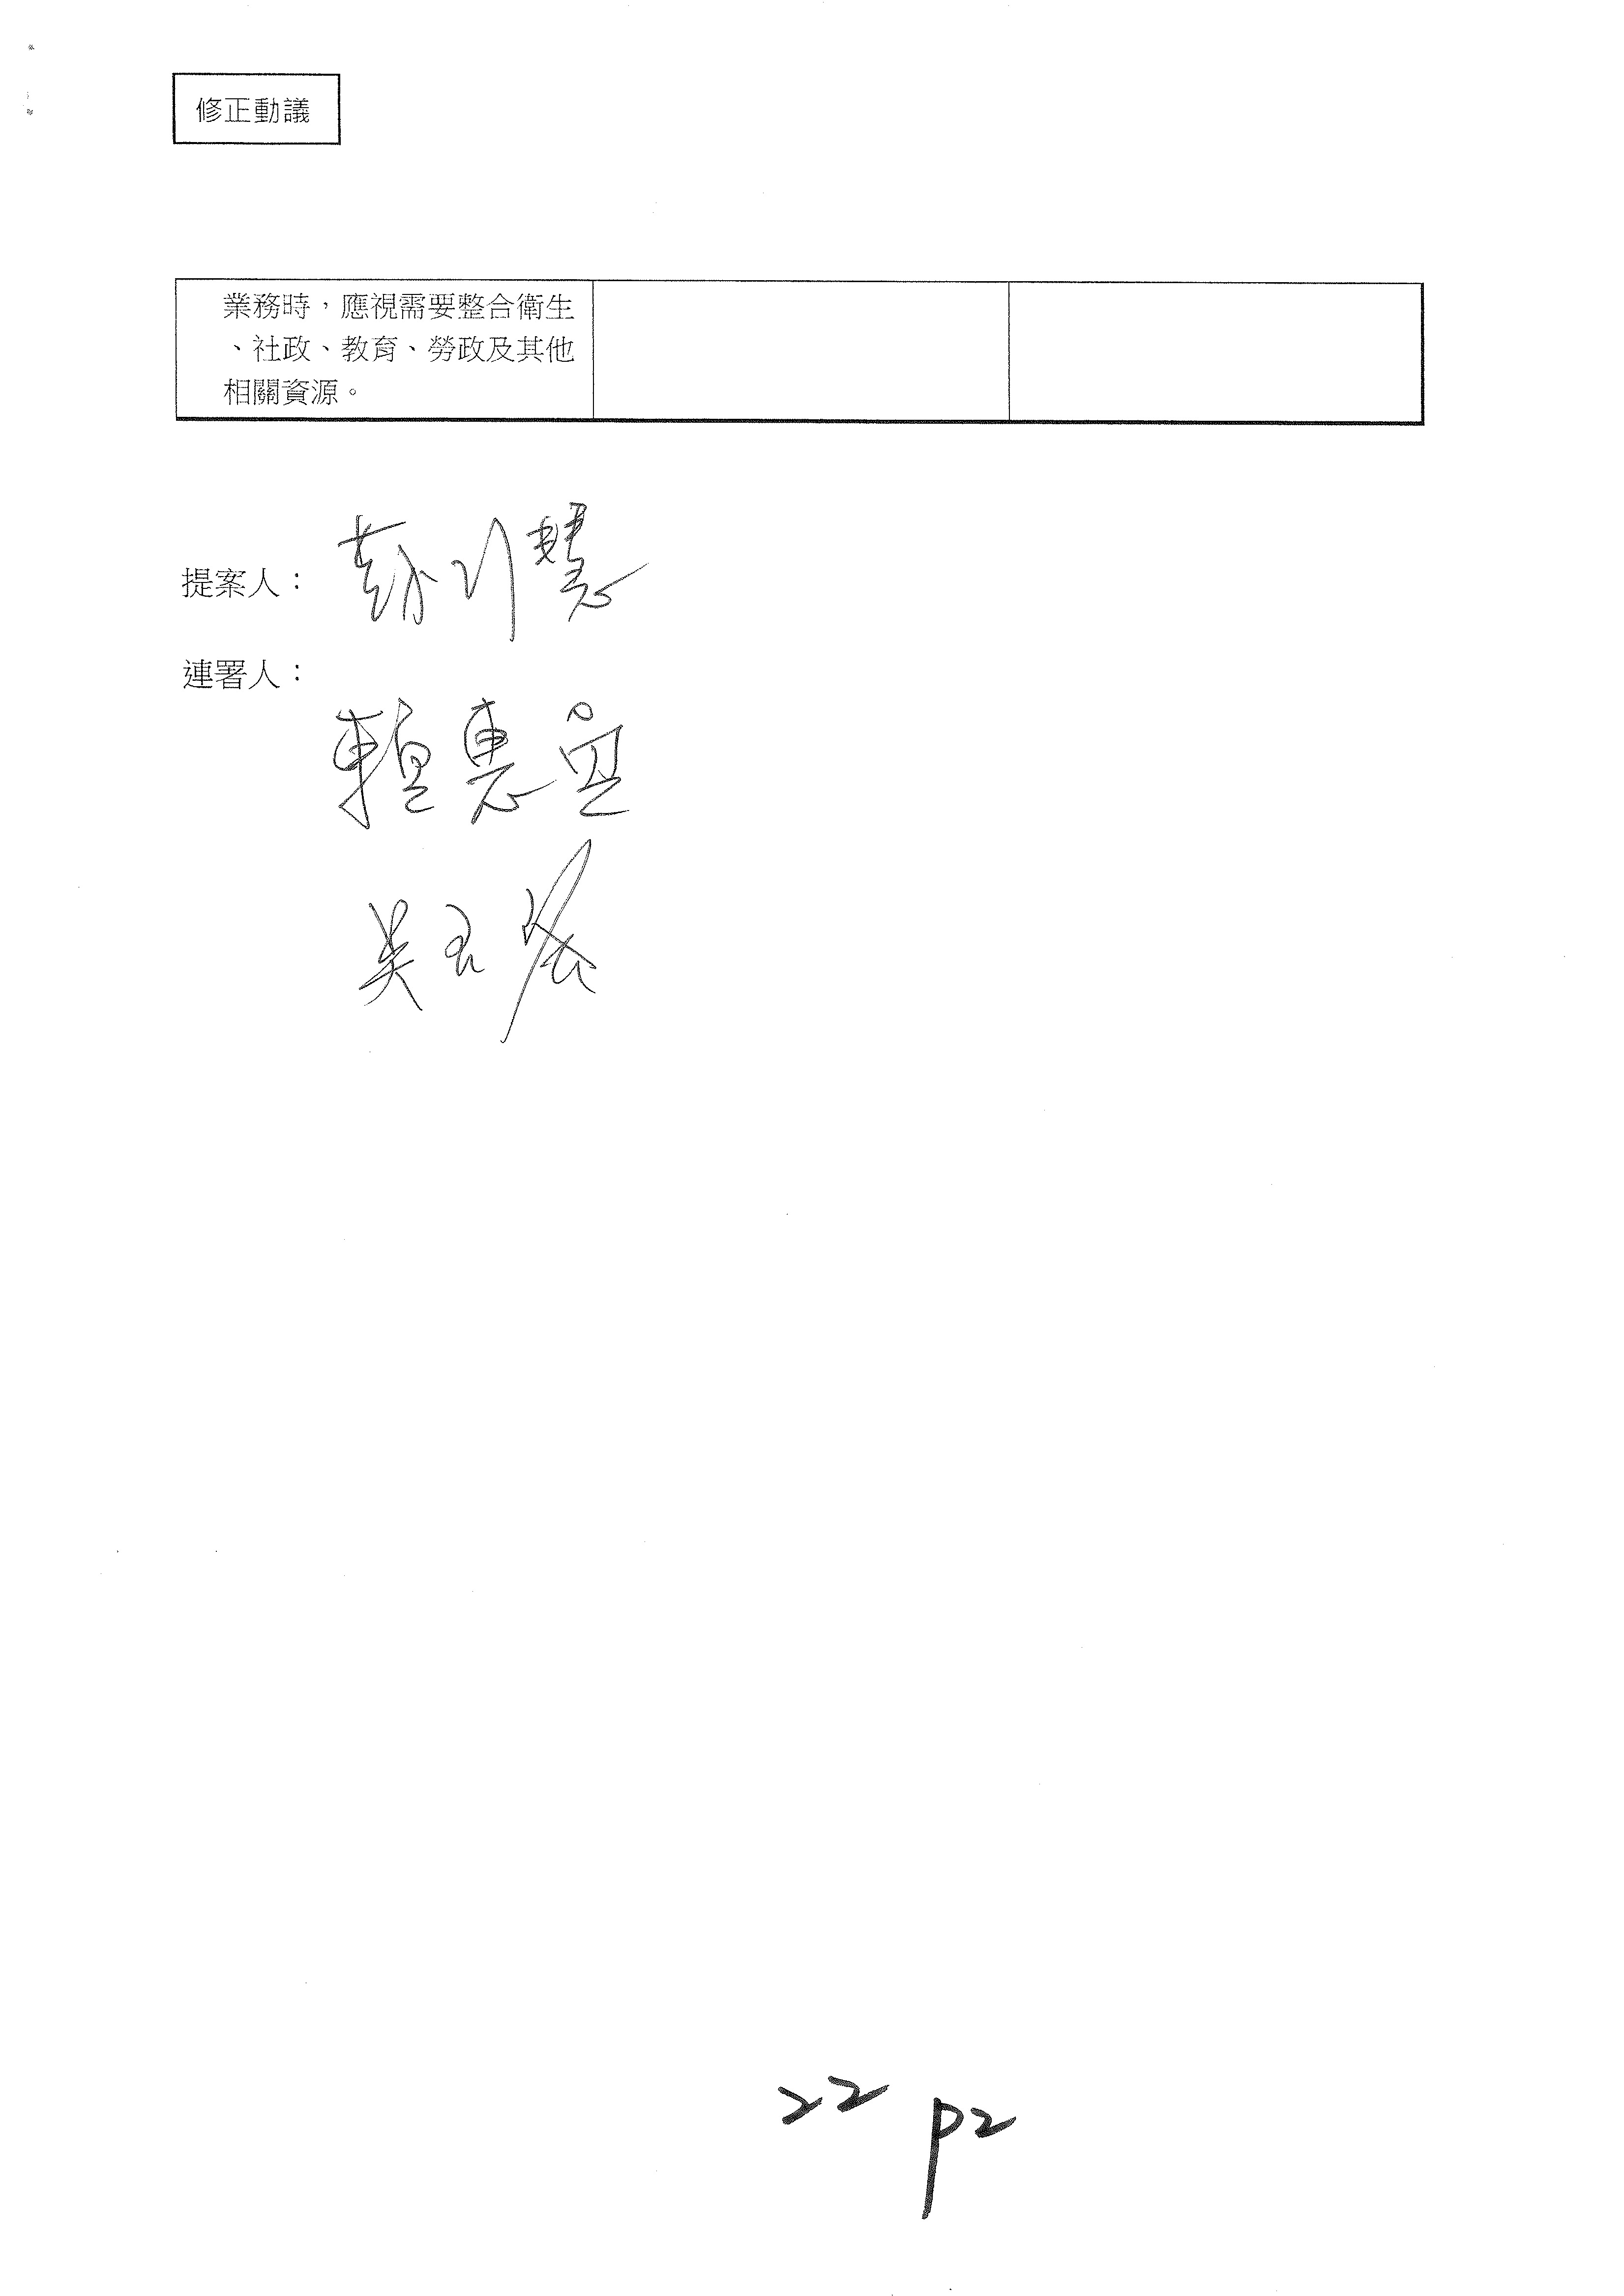 修正動議
業務時，應視需要整合衛生
、社政、教育、勞政及其他
相關資源。
提案人：
連署人：
賴惠員
22 P2